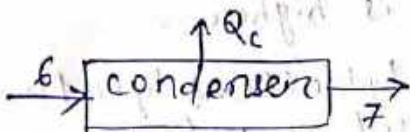 Qc
6 condenser
7